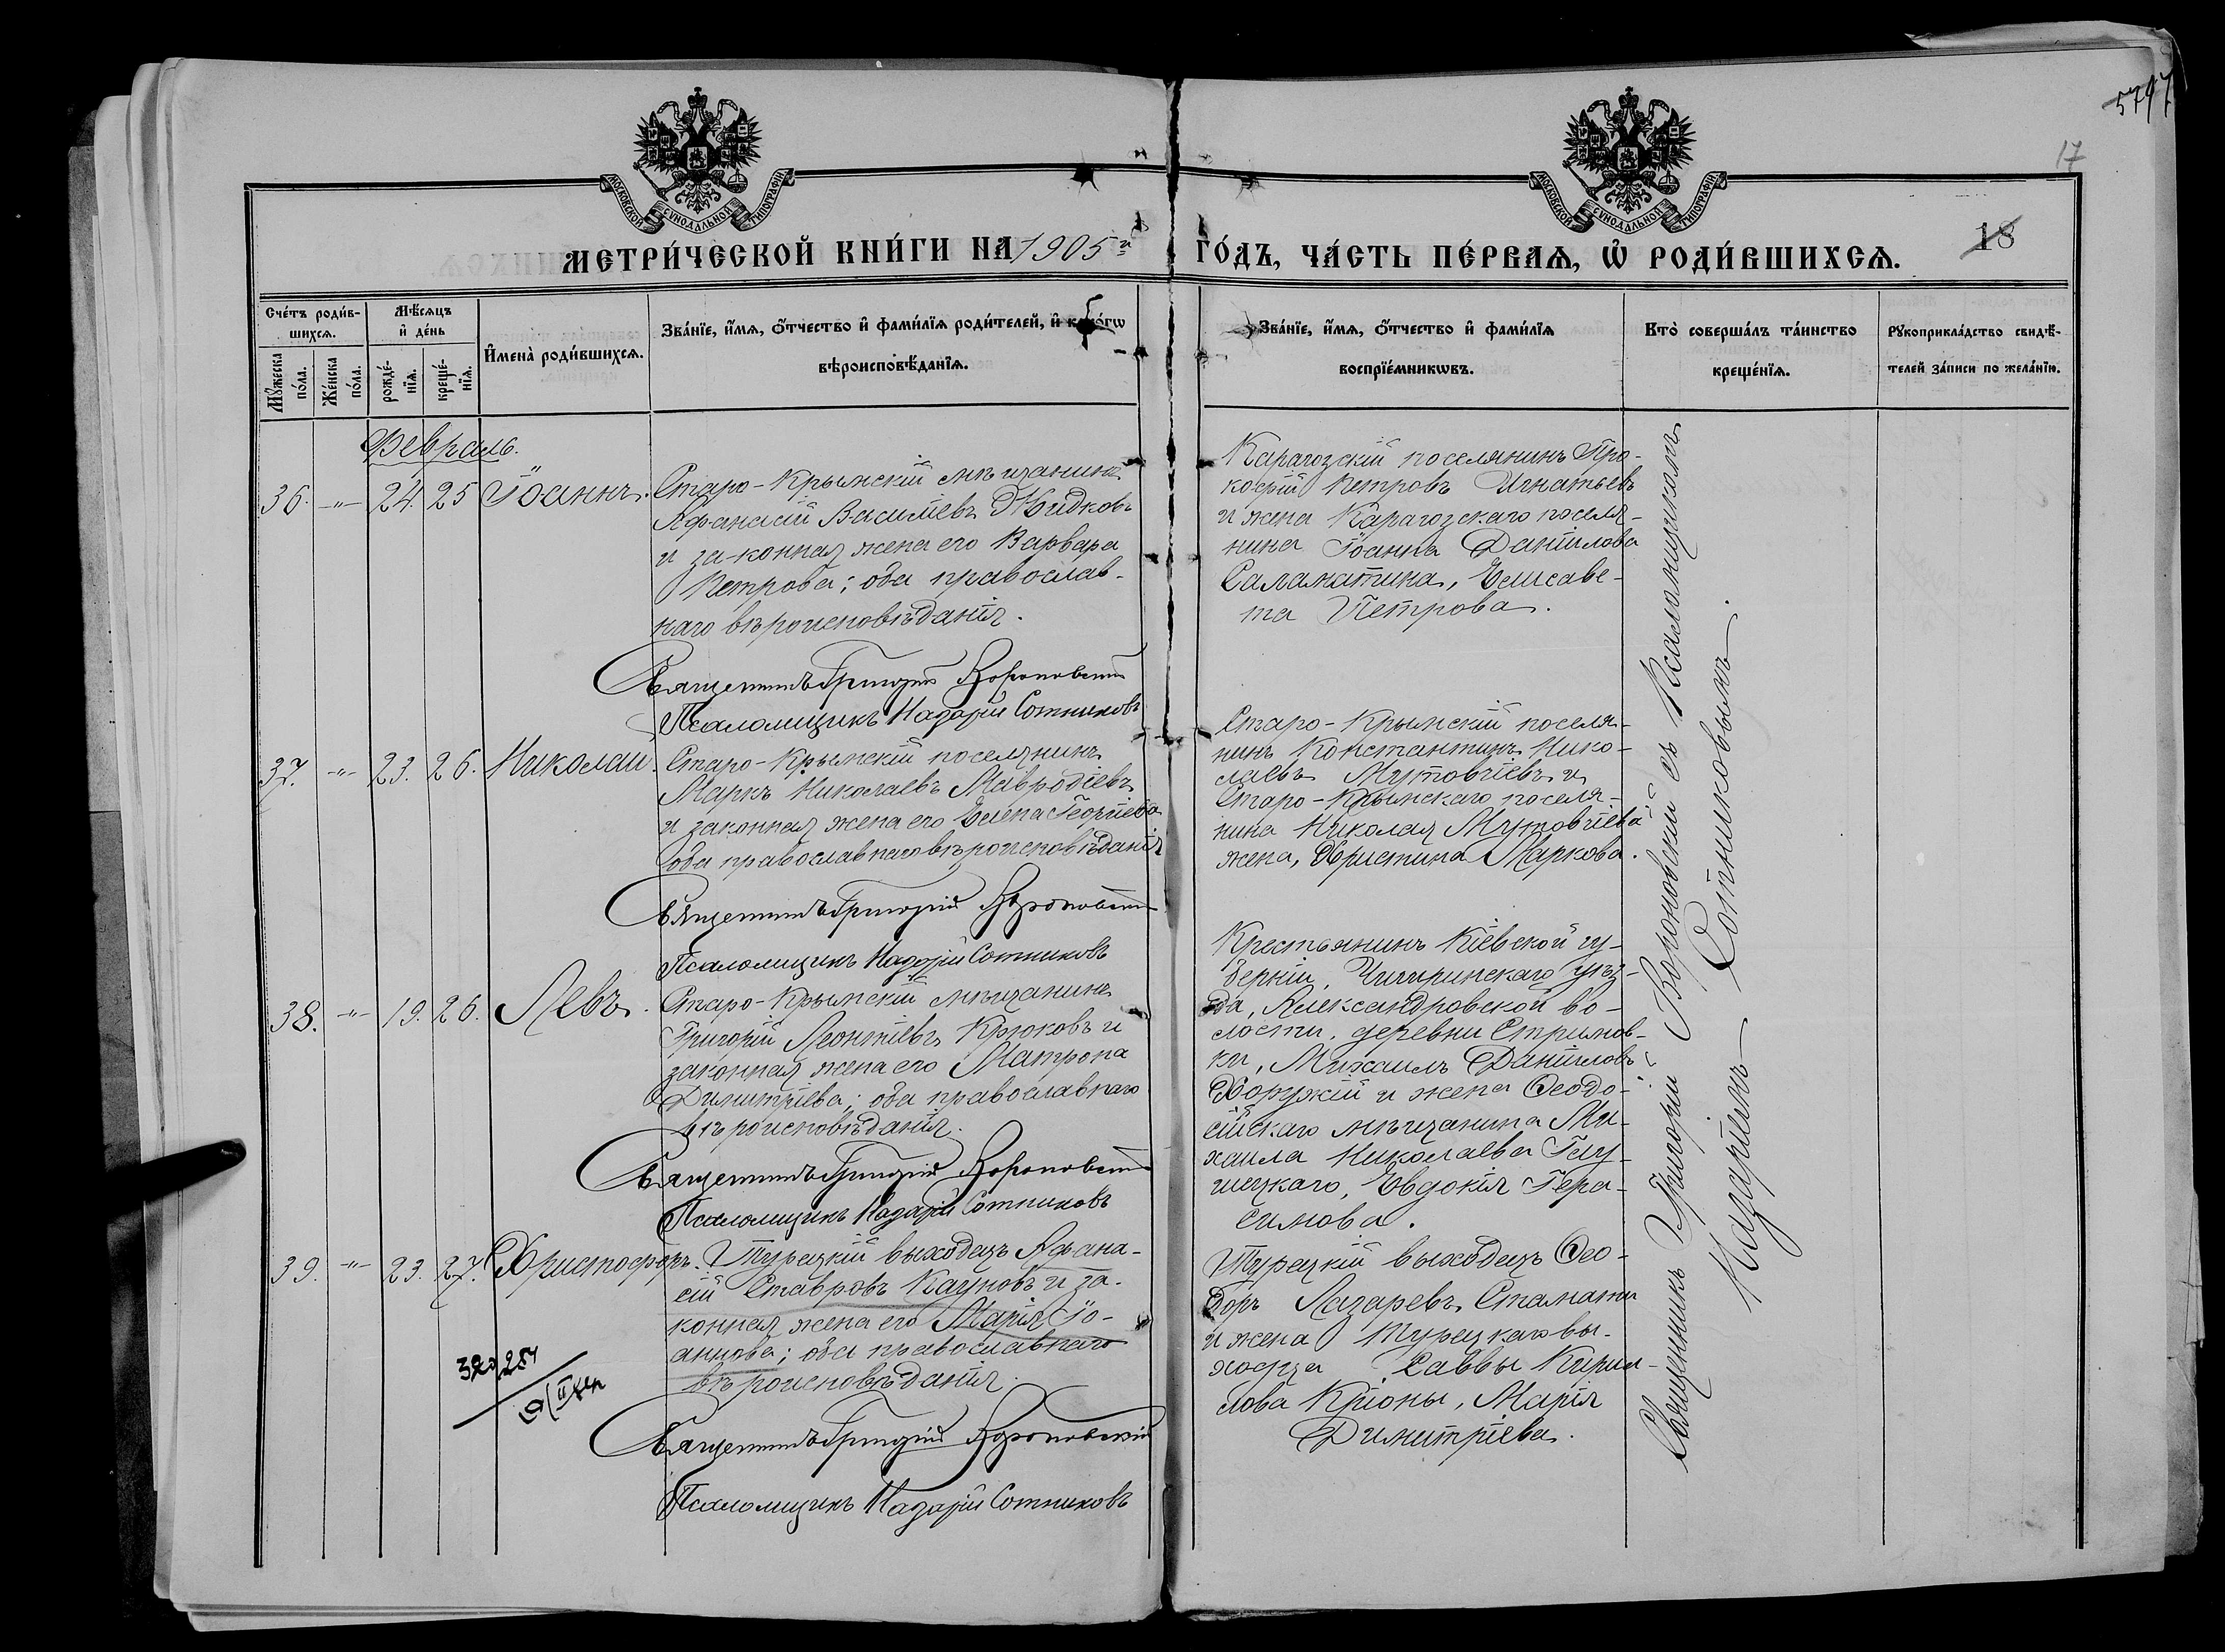 5797
17
18
МОСКОВСКОЙ СѴНОДАЛЬНОЙ ТИПОГРАФІИ
МОСКОВСКОЙ СѴНОДАЛЬНОЙ ТИПОГРАФІИ
МЕТРИ́ЧЕСКОЙ КНИ́ГИ НА 1905й
ГО́ДЪ, ЧА́СТЬ ПЕ́РВАѦ, Ѡ҆ РОДИ́ВШИХСѦ.
Сче́тъ роди́в-
шихсѧ.
Мꙋ́жеска
по́ла.
Же́нска
по́ла.
Мѣ́сѧцъ
и҆ де́нь
рожде́-
нїѧ.
креще́-
нїѧ.
И҆мена̀ роди́вшихсѧ.
Зва́нїе, и҆́мѧ, ѻ҆́тчество и҆ фами́лїѧ роди́телей, и҆ како́гѡ
вѣроисповѣ́данїѧ.
Зва́нїе, и҆́мѧ, ѻ҆́тчество и҆ фами́лїѧ
воспрїе́мникѡвъ.
Кто̀ соверша́лъ та́инство
креще́нїѧ.
Рꙋкоприкла́дство свидѣ́-
телей за́писи по жела́нїю.
Февраль.
36. -"- 24. 25 Іоаннъ.
Старо-Крымскій мѣщанинъ
Афанасій Василіевъ Жидковъ
и за-конная жена его Варвара
Петрова; оба православ-
наго вѣроисповѣданія.
Священникъ Григорій Вороновскій
Псаломщикъ Назарій Сотниковъ
Карагозскій поселянинъ Про-
кофій Петровъ Игнатьевъ
и жена Карагозскаго поселя-
нина Іоанна Даніилова
Саламатина, Елисаве-
та Петрова.
37. -"- 23. 26. Николай.
Старо-Крымскій поселянинъ
Маркъ Николаевъ Мавродіевъ
и законная жена его Елена Георгіева
оба православнаго вѣроисповѣданія
Священникъ Григорій Вороновскій
Псаломщикъ Назарій Сотниковъ
Старо-Крымскій поселя-
нинъ Константинъ Нико-
лаевъ Мутовчіевъ и
Старо-Крымскаго поселя-
нина Николая Мутовчіева
жена, Христина Маркова.
38. -"- 19. 26. Левъ.
Старо-Крымскій мѣщанинъ
Григорій Леонтіевъ Крюковъ и
законная жена его Матрона
Димитріева; оба православнаго
вѣроисповѣданія.
Священникъ Григорій Вороновскій
Псаломщикъ Назарій Сотниковъ
Крестьянинъ Кіевской гу-
берніи, Чигиринскаго уѣз-
да, Александровской во-
лости, деревни Стримов-
ки, Михаилъ Даніиловъ
Хоружій и жена Ѳеодо-
сійскаго мѣщанина Ми-
хаила Николаева Глу-
шецкаго, Евдокія Гера-
симова.
39. -"- 23. 27. Христофоръ.
Турецкій выходецъ Афана-
сій Ставровъ Кауновъ и за-
конная жена его Марія Іо-
аннова; оба православнаго
вѣроисповѣданія.
Священникъ Григорій Вороновскій
Псаломщикъ Назарій Сотниковъ
Турецкій выходецъ Ѳео-
доръ Лазаревъ Стамати
и жена Турецкаго вы-
ходца Саввы Кирил-
лова Кріоны, Марія
Димитріева.
Священникъ Григорій Вороновскій съ Псаломщикомъ
Назаріемъ Сотниковымъ.